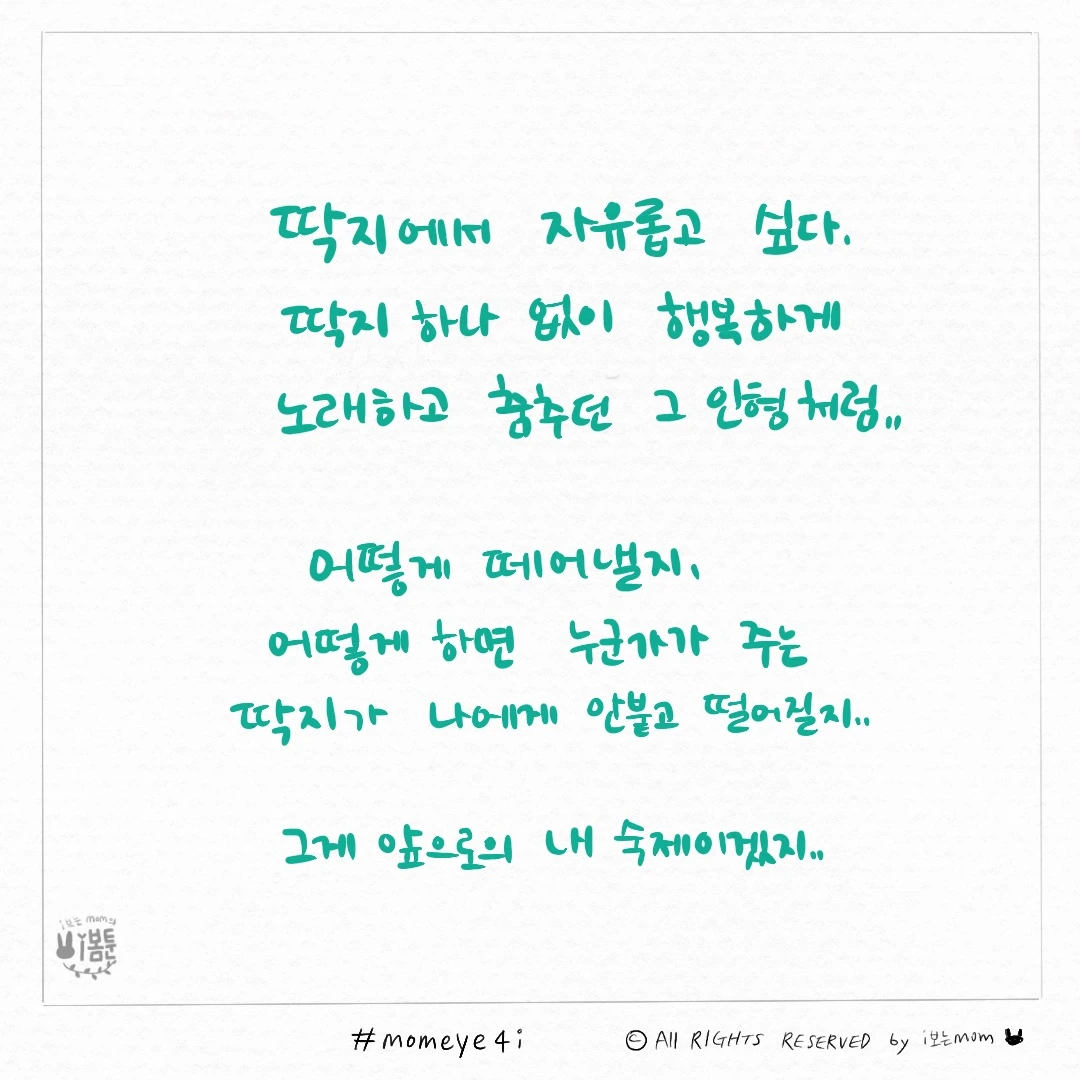 딱지에서 자유롭고 싶다.
딱지 하나 없이 행복하게
노래하고 춤추던 그 인형처럼,,
어떻게 떼어낼지,
어떻게 하면 누군가가 주는
딱지가 나에게 안붙고 떨어질지..
그게 앞으로의 내 숙제이겠지..
i보는 mom의
i봄툰
#momeye4i
© All RIGHTS RESERVED by i보는mom